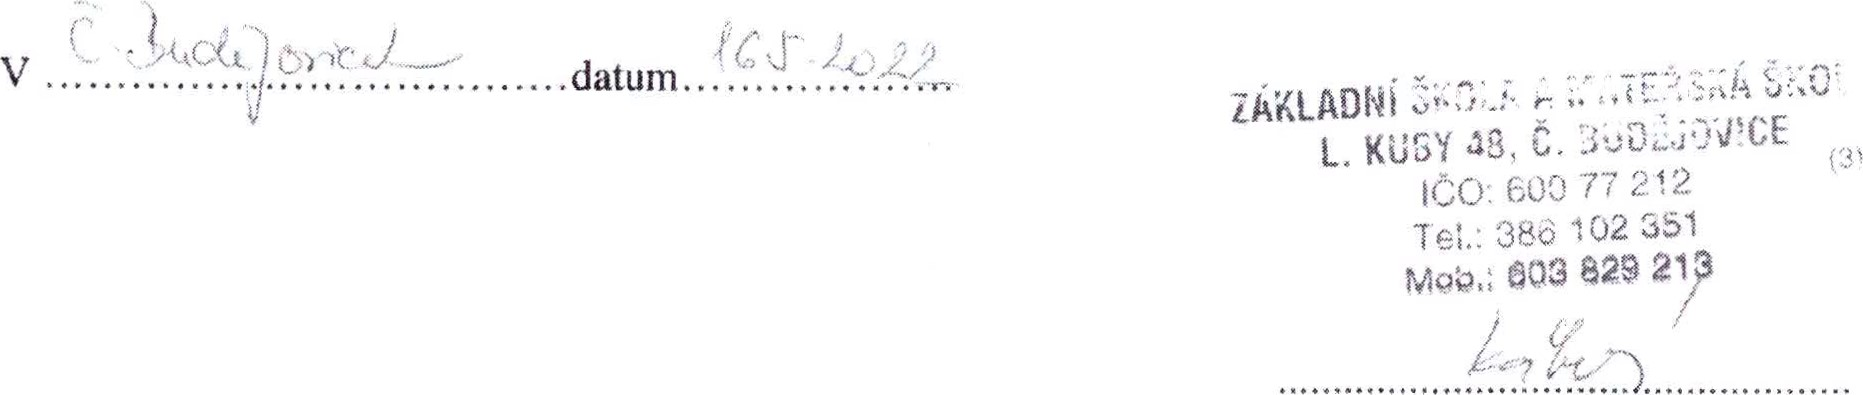 V Č. Budějovicích datum 16.5.2022
ZÁKLADNÍ ŠKOLA A MATEŘSKÁ ŠKOL
L. KUBY 48, Č. BUDĚJOVICE (3)
IČO: 600 77 212
Tel.: 386 102 351
Mob.: 603 829 213